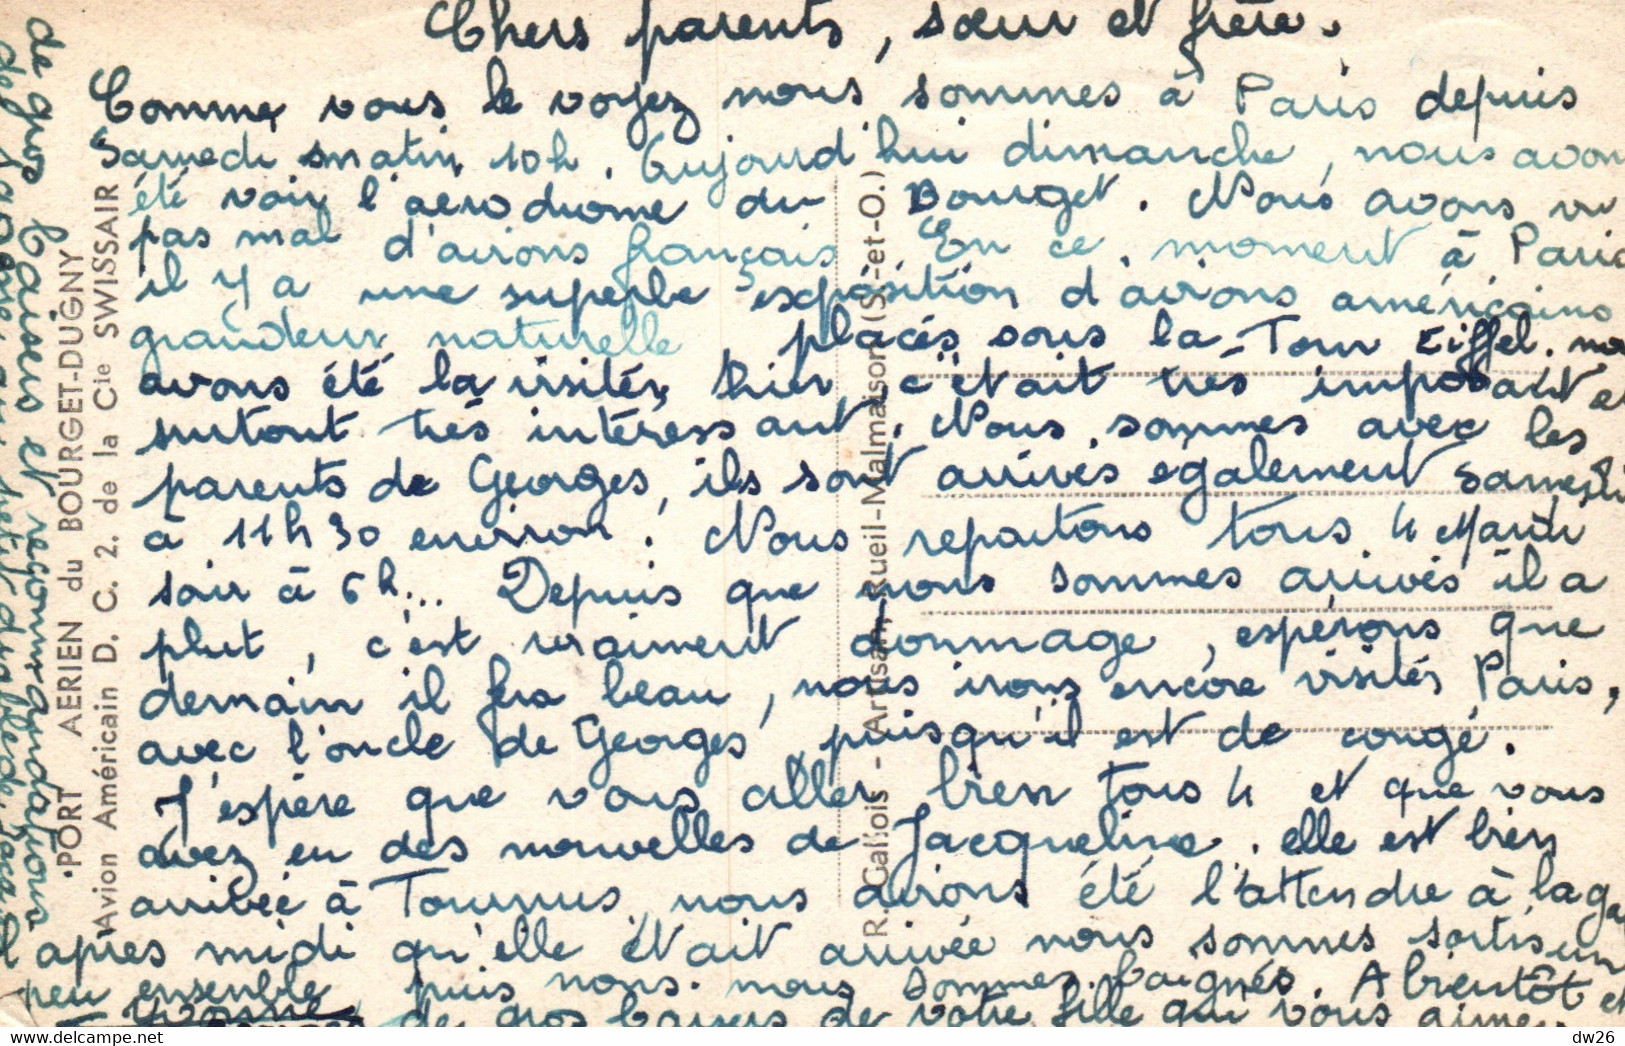 Chers parents, sœur et frère.
Comme vous le voyez nous sommes à Paris depuis
Samedi matin 10h. Aujourd'hui dimanche, nous avons
été voir l'aerodrome du Bourget. Nous avons vu
pas mal d'avions français En ce moment à Paris
il y a une superbe exposition d'avions américains
grandeur naturelle placés sous la Tour Eiffel. nous
avons été la visiter hier, c'était très imposant et
surtout très intéressant. Nous sommes avec les
parents de Georges, ils sont arrivés également Samedi
à 11h30 environ. Nous repartons tous 4 Mardi
soir à 6h... Depuis que nous sommes arrivés il a
plut, c'est vraiment dommage, espérons que
demain il fera beau, nous irons encore visiter Paris,
avec l'oncle de Georges puisqu'il est de congé.
J'espère que vous aller bien tous 4 et que vous
avez eu des nouvelles de Jacqueline. elle est bien
arrivée à Tournus, nous avions été l'attendre à la ga
l'après midi qu'elle était arrivée nous sommes sortis un
peu ensemble, puis nous nous sommes baignés. A bientôt et
Yvonne de gros baisers de votre fille qui vous aime
de gros baisers et recommandations
PORT AERIEN du BOURGET-DUGNY
Avion Américain D. C. 2. de la Cie SWISSAIR
R. Gallois - Artisan, Rueil-Malmaison (S.-et-O.)
dw26
delcampe.net